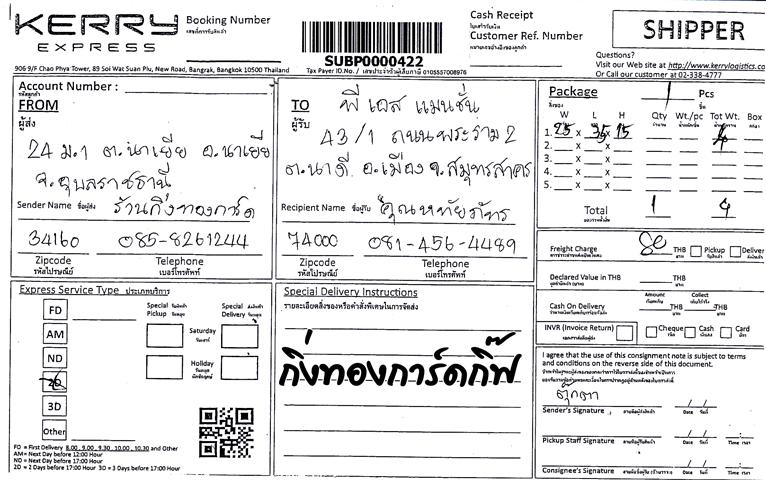 KERRY
EXPRESS
Booking Number
SUBP0000422
Tax Payer ID.No. / เลขประจำตัวผู้เสียภาษี 0105557008976
Cash Receipt
Customer Ref. Number
SHIPPER
Questions?
Visit our Web site at http://www.kerrylogistics.co
Or Call our customer at 02-338-4777
906 9/F Chao Phya Tower, 89 Soi Wat Suan Plu, New Road, Bangrak, Bangkok 10500 Thailand
Account Number :
FROM
ผู้ส่ง
24 ม.1 ต.นาเยีย อ.นาเยีย
จ.อุบลราชธานี
Sender Name ชื่อผู้ส่ง ร้านกิ่งทองการ์ด
34160 085-8261244
Zipcode Telephone
รหัสไปรษณีย์ เบอร์โทรศัพท์
TO
ผู้รับ
พี เอส แมนชั่น
43/1 ถนนพระราม 2
ต.นาดี อ.เมือง จ.สมุทรสาคร
Recipient Name ชื่อผู้รับ คุณหทัยภัทร
74000 081-456-4489
Zipcode Telephone
รหัสไปรษณีย์ เบอร์โทรศัพท์
Package 1 Pcs
W L H Qty Wt./pc Tot Wt. Box
1. 25 x 35 x 15 4
2. x x
3. x x
4. x x
5. x x
Total 1 4
Freight Charge THB Pickup Deliver
Declared Value in THB THB
Amount Collect
Cash On Delivery THB THB
INVR (Invoice Return) Cheque Cash Card
I agree that the use of this consignment note is subject to terms
and conditions on the reverse side of this document.
ตุ๊กตา
Sender's Signature Date วันที่
Pickup Staff Signature Date วันที่ Time เวลา
Consignee's Signature Date วันที่ Time เวลา
Express Service Type ประเภทบริการ
FD
AM
ND
2D
3D
Other
Special Pickup
Special Delivery
Saturday
วันเสาร์
Holiday
FD = First Delivery 8.00, 9.00, 9.30, 10.00, 10.30 and Other
AM= Next Day before 12:00 Hour
ND = Next Day before 17:00 Hour
2D = 2 Days before 17:00 Hour 3D = 3 Days before 17:00 Hour
Special Delivery Instructions
รายละเอียดสิ่งของหรือคำสั่งพิเศษในการจัดส่ง
กิ่งทองการ์ดกิ๊ฟ